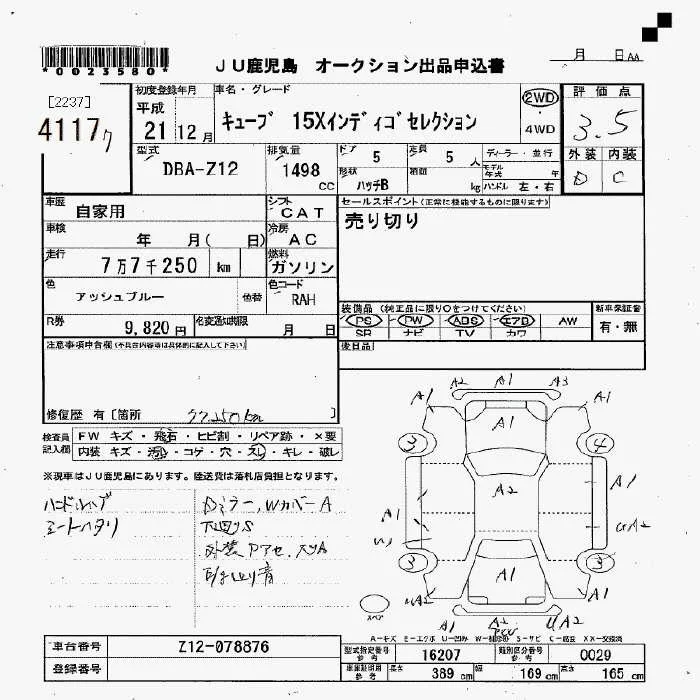 *0023580*
JU鹿児島 オークション出品申込書
月 日 AA
[2237]
4117ク
初度登録年月
平成
21 12月
車名・グレード
キューブ 15Xインディゴセレクション
2WD
・
4WD
評価点
3.5
外装 内装
D C
型式
DBA-Z12
排気量
1498 CC
ドア
5
定員
5 人
形状
ハッチB
積類 kg
ディーラー・並行
モデル年式 年
ハンドル 左・右
車歴
自家用
シフト
CAT
セールスポイント(正常に機能するものに限ります)
売り切り
車検
年 月( 日)
冷房
AC
走行
7万7千250 km
燃料
ガソリン
色
アッシュブルー
色替
色コード
RAH
装備品 (純正品に限り○をつけてください)
PS PW ABS エアB AW
SR ナビ TV カワ
新車保証書
有・無
R券
9,820 円
名変適用期限
月 日
後日品
注意事項申告欄(不具合内容等は具体的に記入して下さい)
修復歴 有 [箇所 77,250km
検査員記入欄
FW キズ・飛石・ヒビ割・リペア跡・×要
内装 キズ・汚れ・コゲ・穴・スレ・キレ・破レ
※現車はJU鹿児島にあります。陸送費は落札店負担となります。
ハンドルハゲ
シートヘタリ
Dミラー,WカバーA
下回りS
A1 A2 A1 A3 A1
A1
3 4
A2
A1 A1
A2
3 3
A1
A2
A1 A2 A2
スペア
A-キズ E-エクボ U-凹み W-補修跡 S-サビ C-腐食 XX-交換済
車台番号
Z12-078876
登録番号
型式指定番号 参考
16207
類別区分番号 参考
0029
車庫証明用 参考
長さ 389 cm
幅 169 cm
高さ 165 cm